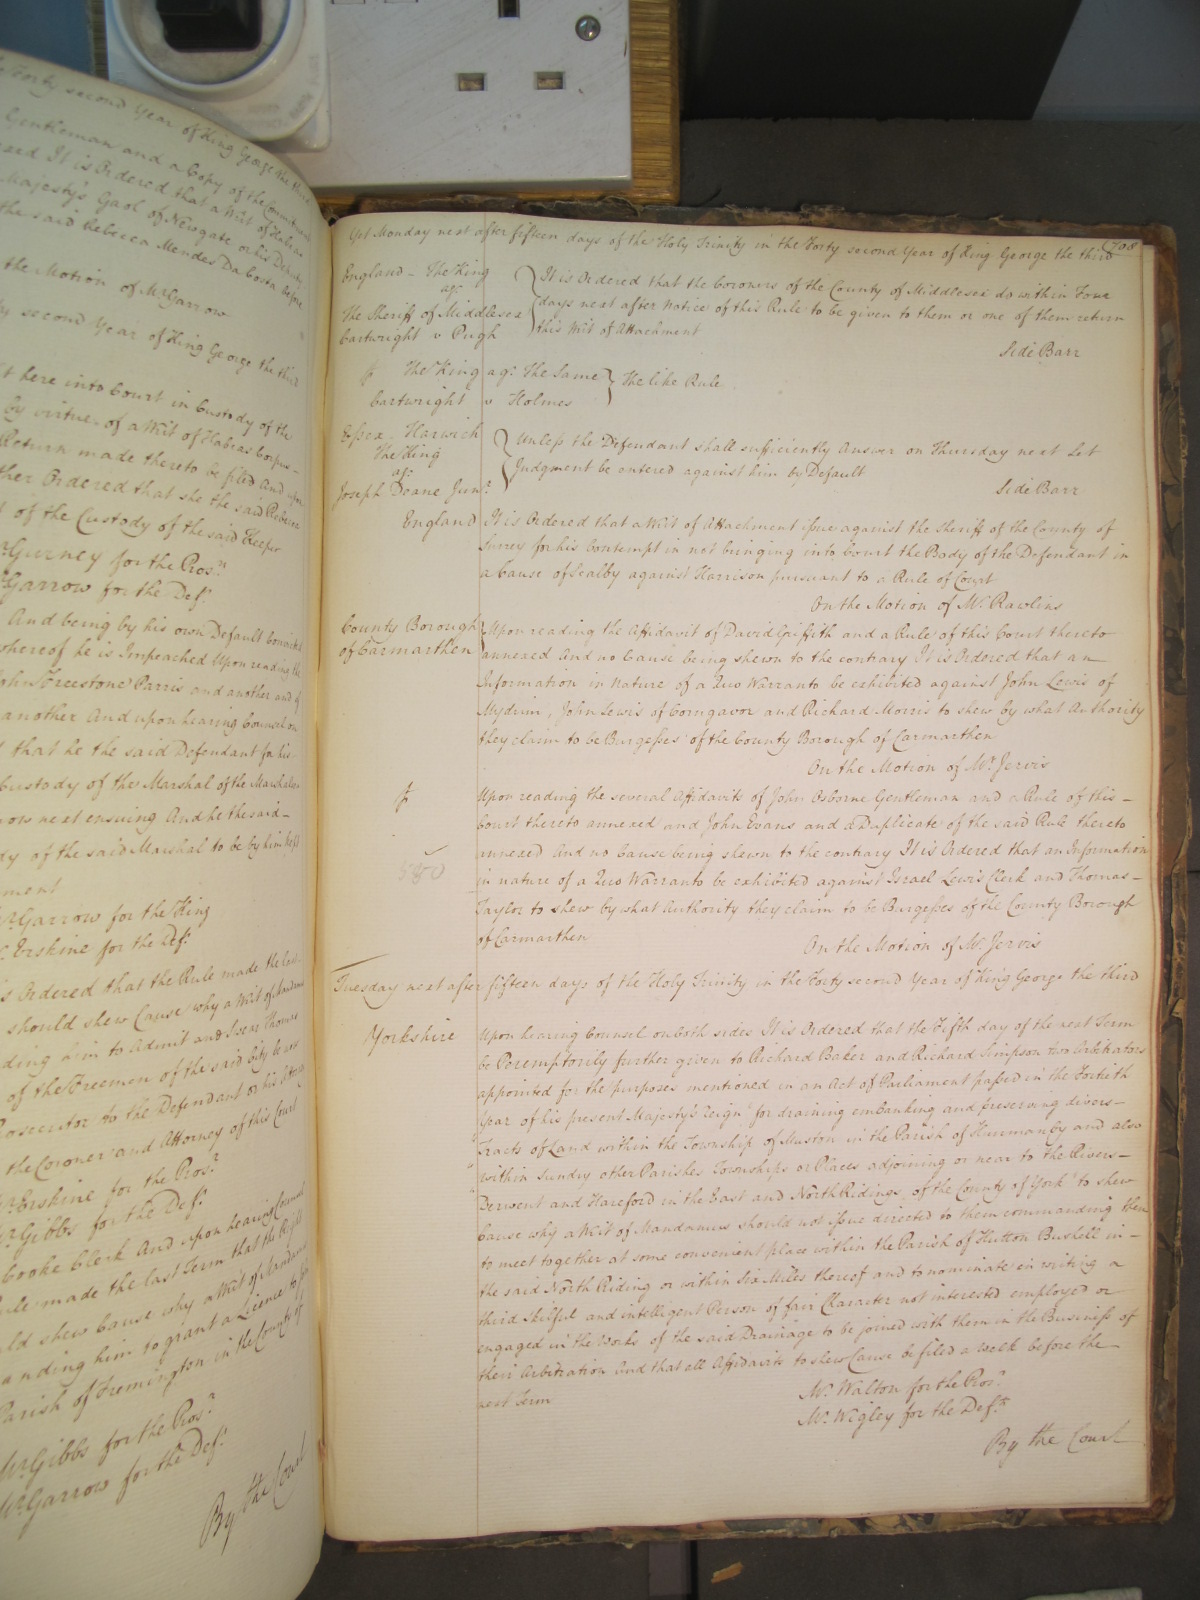 Forty second Year of King George the third
Gentleman and a Copy of the Commitment
It is Ordered that a Writ of Habeas
Majesty's Gaol of Newgate or his Deputy
the said Rebecca Mendes Da Costa before
the Motion of Mr Garrow
second Year of King George the third
here into Court in Custody of the
by virtue of a Writ of Habeas Corpus
Return made thereto be filed And upon
Ordered that she the said Rebecca
of the Custody of the said Keeper
Gurney for the Pros.r
Garrow for the Def.t
And being by his own Default Convicted
whereof he is Impeached Upon reading the
John Creestone Parris and another and of
another And upon hearing Counsel on
that he the said Defendant for his
Custody of the Marshal of the Marshalsea
now next ensuing And he the said
of the said Marshal to be by him kept
Mr. Garrow for the King
Erskine for the Def.t
Ordered that the Rule made the last
should shew Cause why a Writ of Mandamus
him to Admit and Swear Thomas
of the Freemen of the said City
Prosecutor to the Defendant or his Attorney
the Coroner and Attorney of this Court
Erskine for the Pros.r
Gibbs for the Def.t
Cooke Clerk And upon hearing Counsel
Rule made the last Term that the
shew Cause why a Writ of Mandamus
him to grant a Licence to
Parish of Fremington in the County of
Mr Gibbs for the Pros.r
Mr Garrow for the Def.t
By the Court
Yet Monday next after fifteen days of the Holy Trinity in the Forty second Year of King George the third
708
England – The King
ag.t
The Sheriff of Middlesex
Cartwright v Pugh
It is Ordered that the Coroners of the County of Middlesex do within Four
days next after notice of this Rule to be given to them or one of them return
this Writ of Attachment
Side Barr
The King ag.t The Same } The like Rule
Cartwright v Holmes
Essex – Harwich
The King
ag.t
Joseph Deane Jun.r
Unless the Defendant shall sufficiently Answer on Thursday next Let
Judgment be entered against him by Default
Side Barr
England
It is Ordered that a Writ of Attachment issue against the Sheriff of the County of
Surrey for his Contempt in not bringing into Court the Body of the Defendant in
a Cause of Scalby against Harrison pursuant to a Rule of Court
On the Motion of Mr. Rawlins
County Borough
of Carmarthen
Upon reading the Affidavit of David Griffith and a Rule of this Court thereto
annexed And no Cause being shewn to the contrary It is Ordered that an
Information in nature of a Quo Warranto be exhibited against John Lewis of
Mydrim, John Lewis of Corngavor and Richard Morris to shew by what Authority
they claim to be Burgesses of the County Borough of Carmarthen
On the Motion of Mr. Jervis
Upon reading the several Affidavits of John Osborne Gentleman and a Rule of this
Court thereto annexed and John Evans and a Duplicate of the said Rule thereto
annexed And no Cause being shewn to the contrary It is Ordered that an Information
in nature of a Quo Warranto be exhibited against Israel Lewis Clerk and Thomas
Taylor to shew by what Authority they claim to be Burgesses of the County Borough
of Carmarthen
On the Motion of Mr. Jervis
Tuesday next after fifteen days of the Holy Trinity in the Forty second Year of King George the third
Yorkshire
Upon hearing Counsel on both sides It is Ordered that the Fifth day of the next Term
be Peremptorily further given to Richard Baker and Richard Simpson two Arbitrators
appointed for the purposes mentioned in an Act of Parliament passed in the Fortieth
Year of his present Majesty's Reign "for draining embanking and preserving divers
"Tracts of Land within the Township of Muston in the Parish of Hunmanby and also
"within Sundry other Parishes Townships or Places adjoining or near to the Rivers
"Derwent and Hareford in the East and North Ridings of the County of York" to shew
Cause why a Writ of Mandamus should not issue directed to them commanding them
to meet together at some convenient place within the Parish of Hutton Bushell in
the said North Riding or within Six Miles thereof and to nominate in writing a
third skilful and intelligent Person of fair Character not interested employed or
engaged in the Works of the said Drainage to be joined with them in the Business of
their Arbitration And that all Affidavits to shew Cause be filed a week before the
next Term
Mr. Walton for the Pros.r
Mr. Wigley for the Def.ts
By the Court